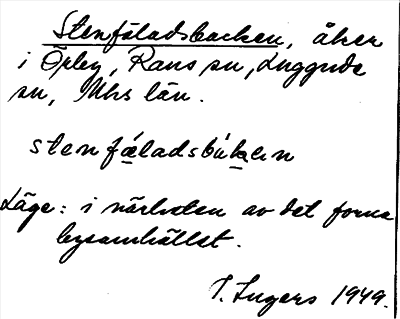 Stenfäladsbacken, åker
i Örby, Raus sn, Luggude
sn, Mhs län.
sten fäladsbákan
Läge: i närheten av det forna
bysamhället.
I. Ingers 1949.